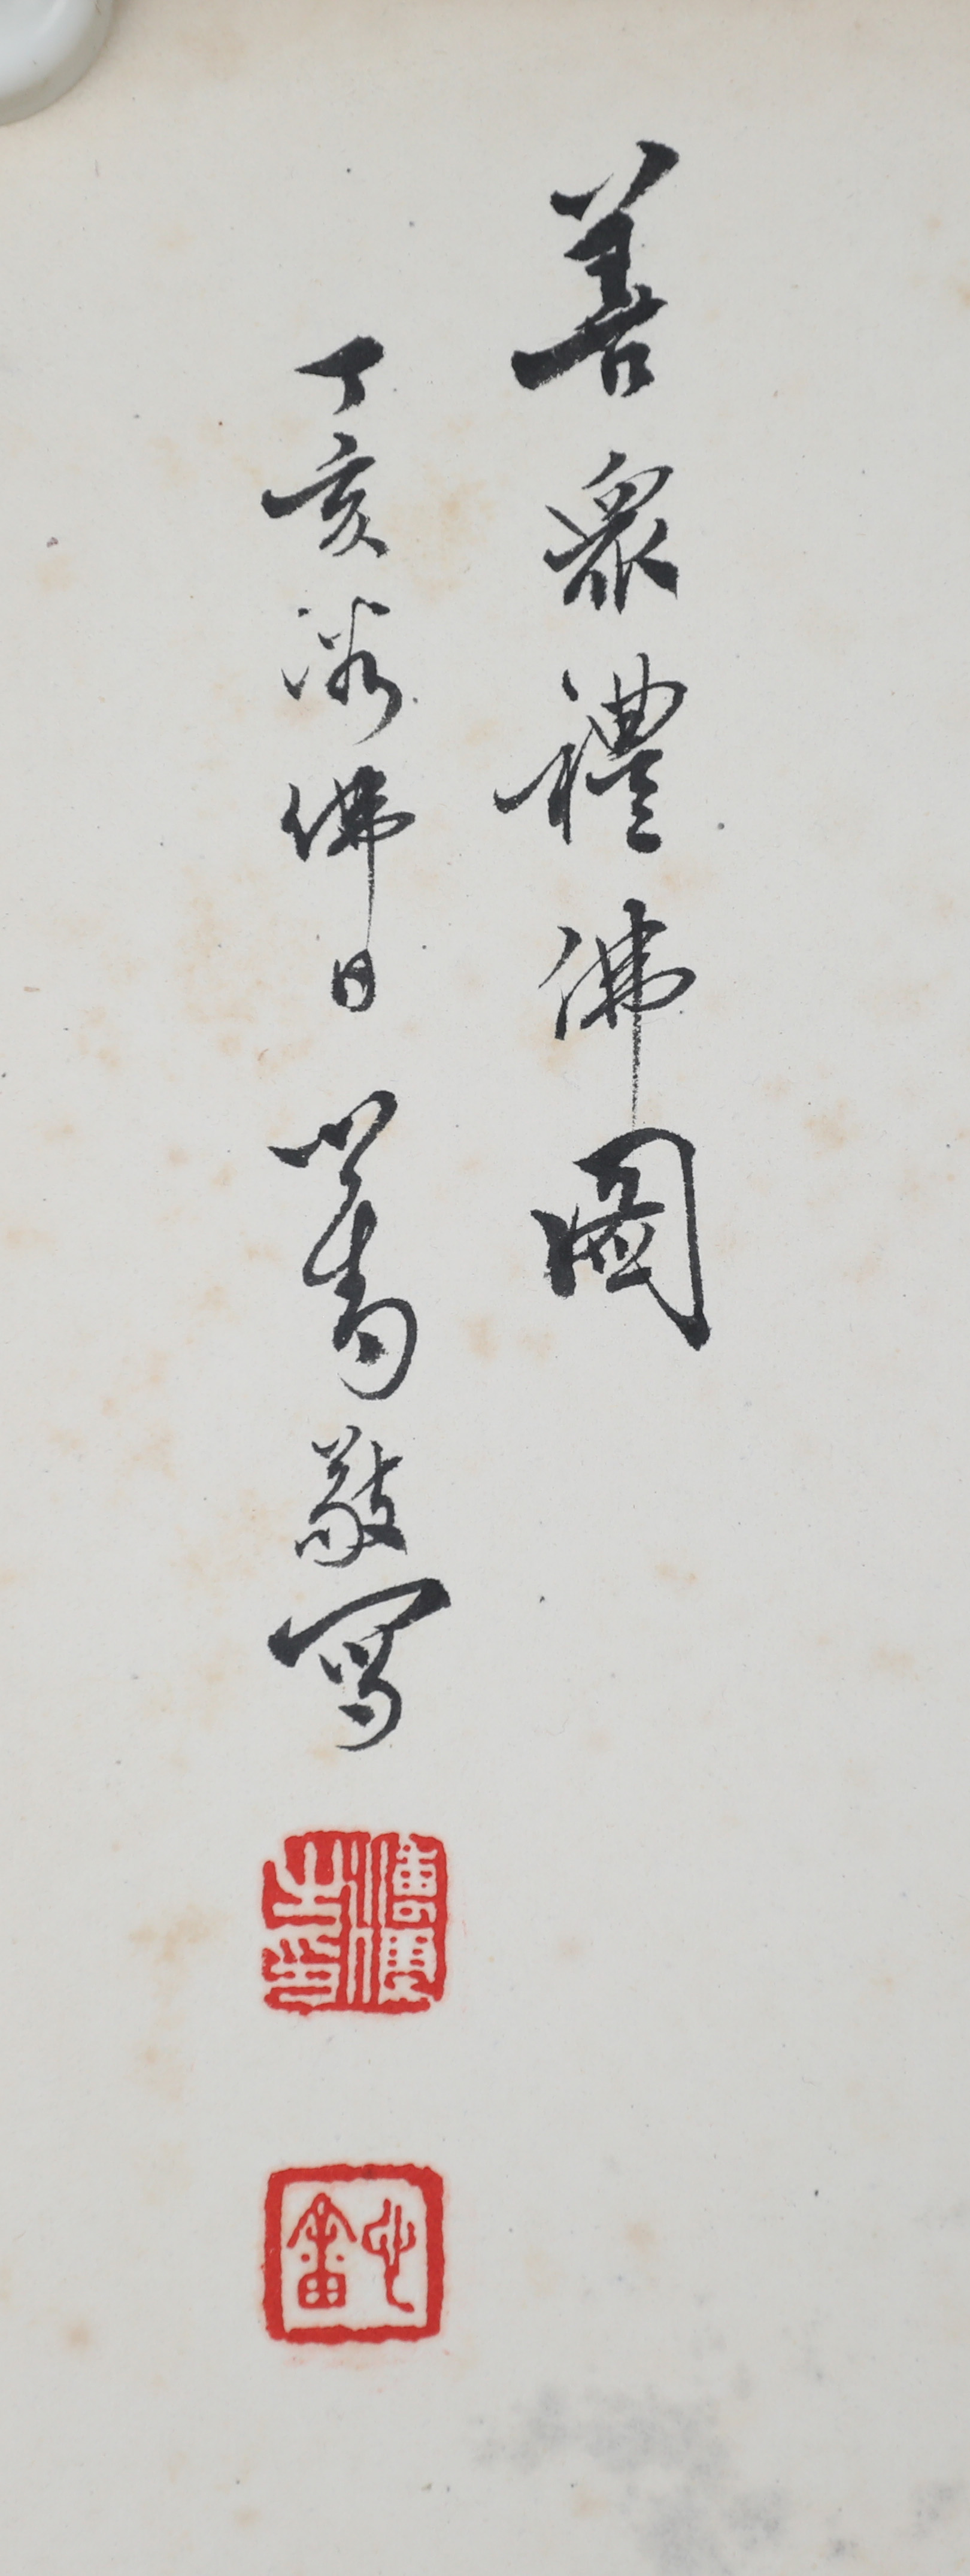 善眾禮佛圖
丁亥浴佛日 心畬敬寫
溥儒之印
心畬